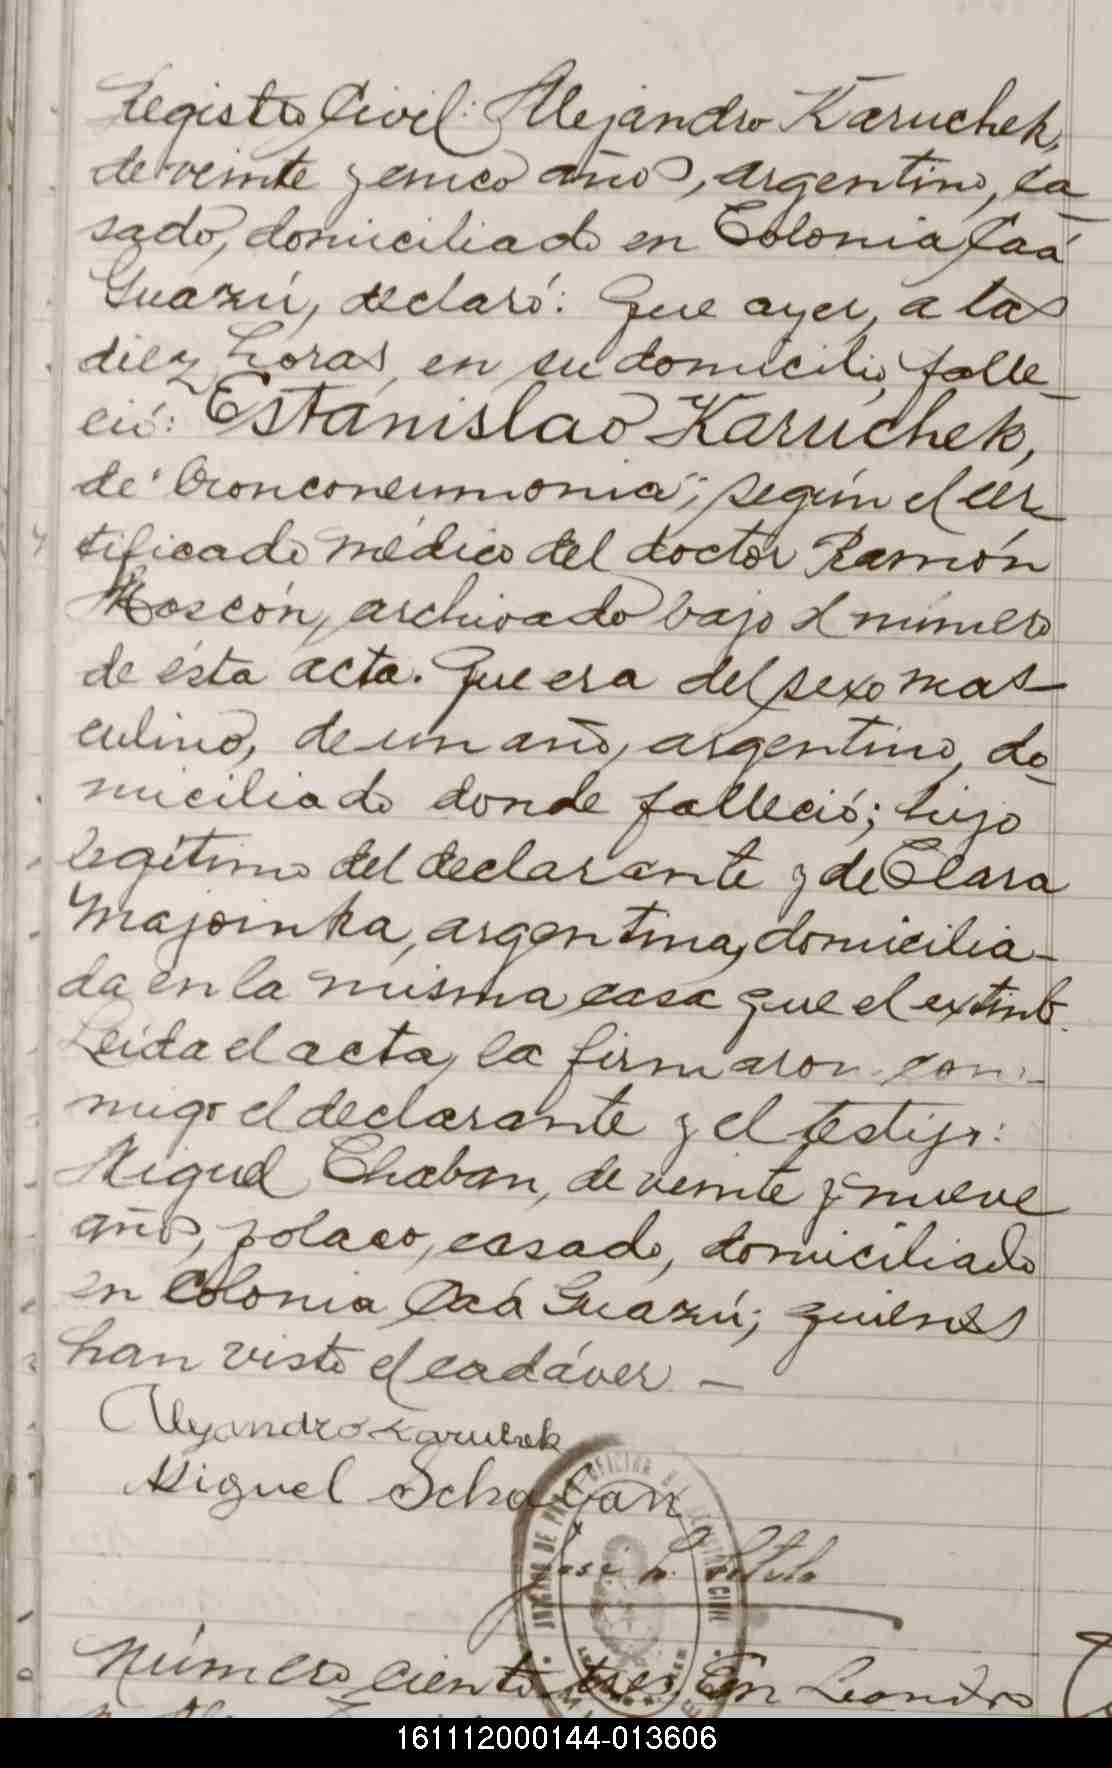 Registro Civil: Alejandro Karuchek,
de veinte y cinco años, argentino, ca-
sado, domiciliado en Colonia Caá
Guazú, declaró: Que ayer, a las
diez horas, en su domicilio, falle-
ció: Estanislao Karuchek,
de "bronconeumonia"; según el cer-
tificado médico del doctor Ramón
Moscón, archivado bajo el número
de ésta acta. Que era del sexo mas-
culino, de un año, argentino, do-
miciliado donde falleció; hijo
legítimo del declarante y de Clara
Majoinka, argentina, domicilia-
da en la misma casa que el extinto.
Leida el acta, la firmaron con-
migo el declarante y el testigo:
Miguel Chaban, de veinte y nueve
años, polaco, casado, domiciliado
en Colonia Caá Guazú; quienes
han visto el cadáver —
Alejandro Karuchek
Miguel Schaban
José
Número ciento tres. En Leandro
161112000144-013606